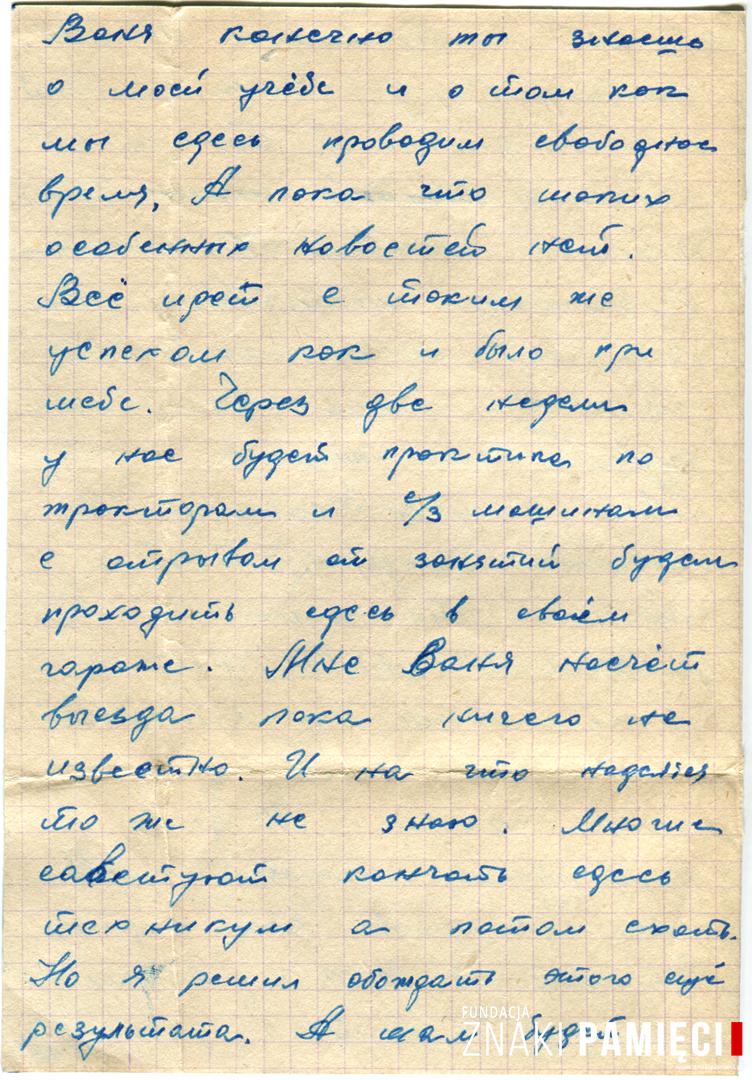 Ваня конечно ты знаешь
о моей учёбе и о том как
мы сдесь проводим свободное
время, А пока что таких
особенных новостей нет.
Всё идёт с таким же
успехом как и было при
тебе. Через две недели
у нас будет практика по
тракторам и с/з машинам
с отрывом от занятий будем
проходить сдесь в своём
гараже. Мне Ваня насчёт
выезда пока ничего не
известно. И на что надеятся
то же не знаю. Многие
саветуют кончать сдесь
техникум а потом ехать.
Но я решил обождать этого ещё
результата. А там будет
FUNDACJA
ZNAKI PAMIĘCI